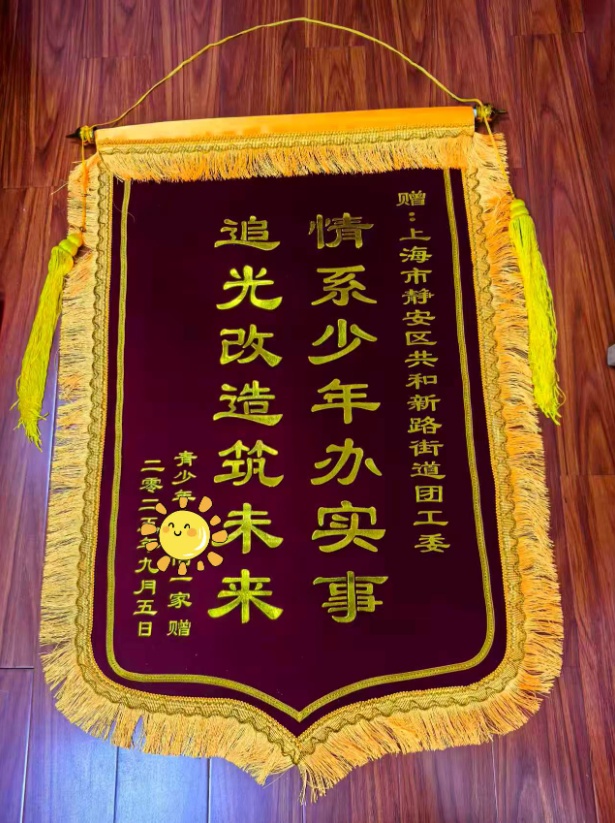 赠：上海市静安区共和新路街道团工委
情系少年办实事
追光改造筑未来
青少年 一家赠
二零二五年九月五日